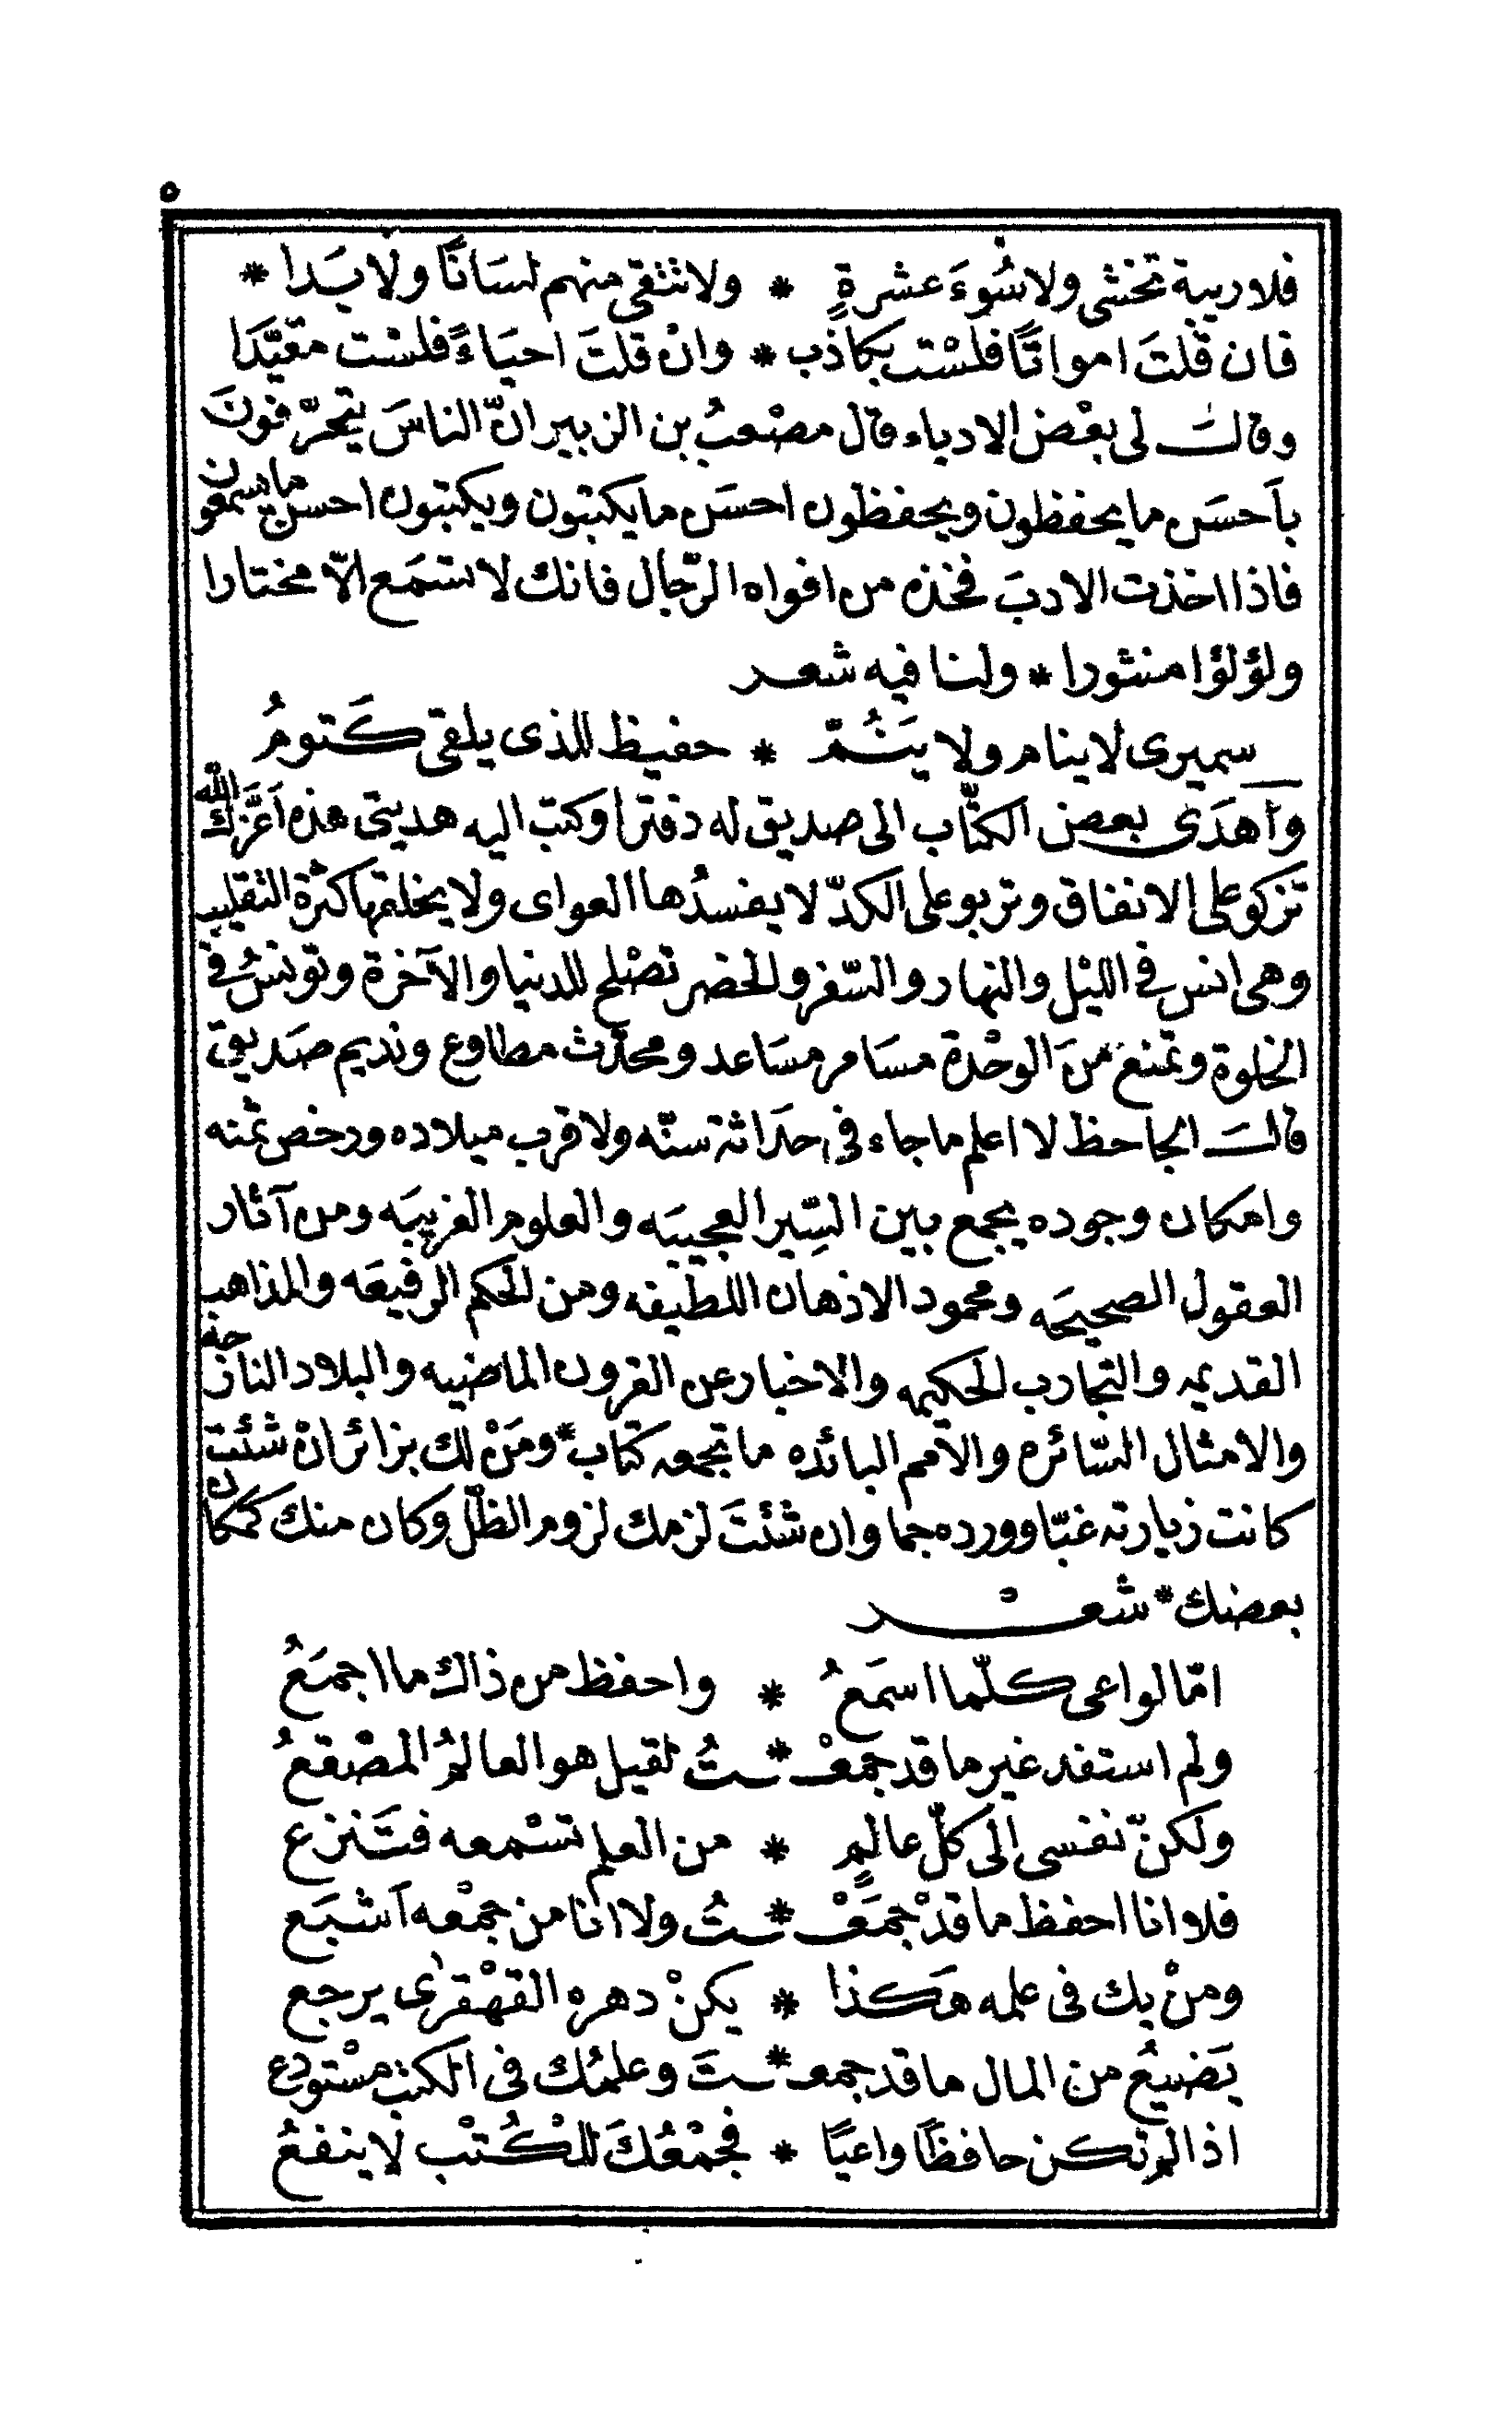 ٥
فلا ريبة تخشى ولا سُوءَ عشرةٍ * ولا نتقى منهم لسَانًا ولا يَدا *
فان قلتَ امواتًا فلسْت بكاذب * وانْ قلتَ احيَاءً فلسْت مفَيَّدَا
وقالتَ لى بعْض الادباء قال مصْعبُ بن الزبير انّ الناسَ يتحرّفونَ
باَحسَن ما يحفظون ويحفظون احسَن ما يكتبون ويكتبون احسن ما يسمعون
فاذا اخذت الادبَ فخذه من افواه الرّجال فانك لا تسْمَع الاّ مختارا
ولؤلؤا منثورا * ولنا فيه شعر
سميرى لا ينام ولا يَنُمّ * حفيظ للذى يلقى كَتومُ
وَاَهدَى بعض الكتّاب الى صديق له دفترا وكتب اليه هديتى هذه اَعَزَّك الله
تزكو على الانفاق وتربو على الكدّ لا يفسدُها العوارى ولا يخلقها كثرة التقليب
وهى انس فى الليْل والنهار والسّفر والحضر تصْلح للدنيا والآخرة وتونسُ فى
الخلوة وتمنع منَ الوحْدة مسَامر مسَاعد ومحدّث مطاوع ونديم صَديق
قالتَ الجاحظ لا اعلم ما جاء فى حدَاثة سنّه ولا قرب ميلاده ورخص ثمنه
وامكان وجوده يجمع بين السِّير العجيبَه والعلوم الغريبَه ومن آثار
العقول الصحيحَه ومحمود الاذهان اللطيفه ومن الحكم الرفيعَه والمذاهب
القديمه والتجارب الحكيمه والاخبار عن القرون الماضيه والبلاد النازحه
والامثال السّائره والاَمم البائده ما تجمعه كتاب * ومَنْ لك بزائر انْ شئت
كانت زيارته غبّا وورده جما وان شئتَ لزمك لزوم الظلّ وكان منك كمكان
بعضك * شعْر
امّا لو اعى كلّما اسمَعُ * واحفظ من ذاك ما اجمَعُ
ولم استفد غير ما قد جمعْـ * ـتُ لقيل هو العالمُ المصْقعُ
ولكنّ نفسى الى كلّ عالمٍ * من العلم تسْمعه فتَنزع
فلا انا احفظ ما قدْ جمَعْـ * ـتُ ولا انا من جمْعه اَشبَع
ومنْ يك فى علمه هَكذا * يكنْ دهره القهْقرى يرجع
يَضيعُ من المال ما قد جمعـ * ـتَ وعلمُك فى الكتب مسْتودع
اذا لم تكن حافظًا واعيًا * فجمْعُكَ للْكُتْب لا ينفعُ